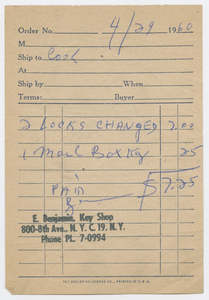 Order No. 4/29 1960
M
Ship to Cook
At
Ship by When
Terms: Buyer
2 LOCKS CHANGED 7.00
1 Mail Box Key .25
PAID $7.25
E. Benjamin, Key Shop
800-8th Ave., N. Y. C. 19, N. Y.
Phone PL. 7-0994